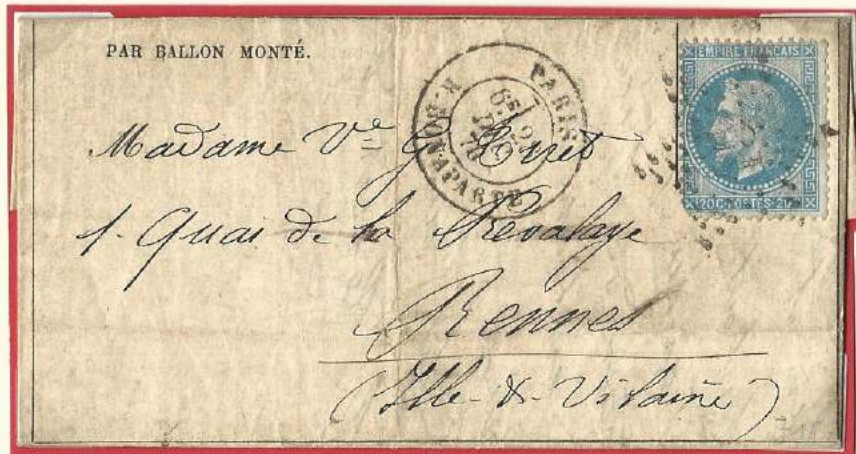 PAR BALLON MONTÉ.
PARIS
R. BONAPARTE
6E
DEC
70
EMPIRE FRANÇAIS
20 C POSTES 20 C
Madame Ve G.
1. Quai de la Prévalaye
Rennes
(Ille-&-Vilaine)